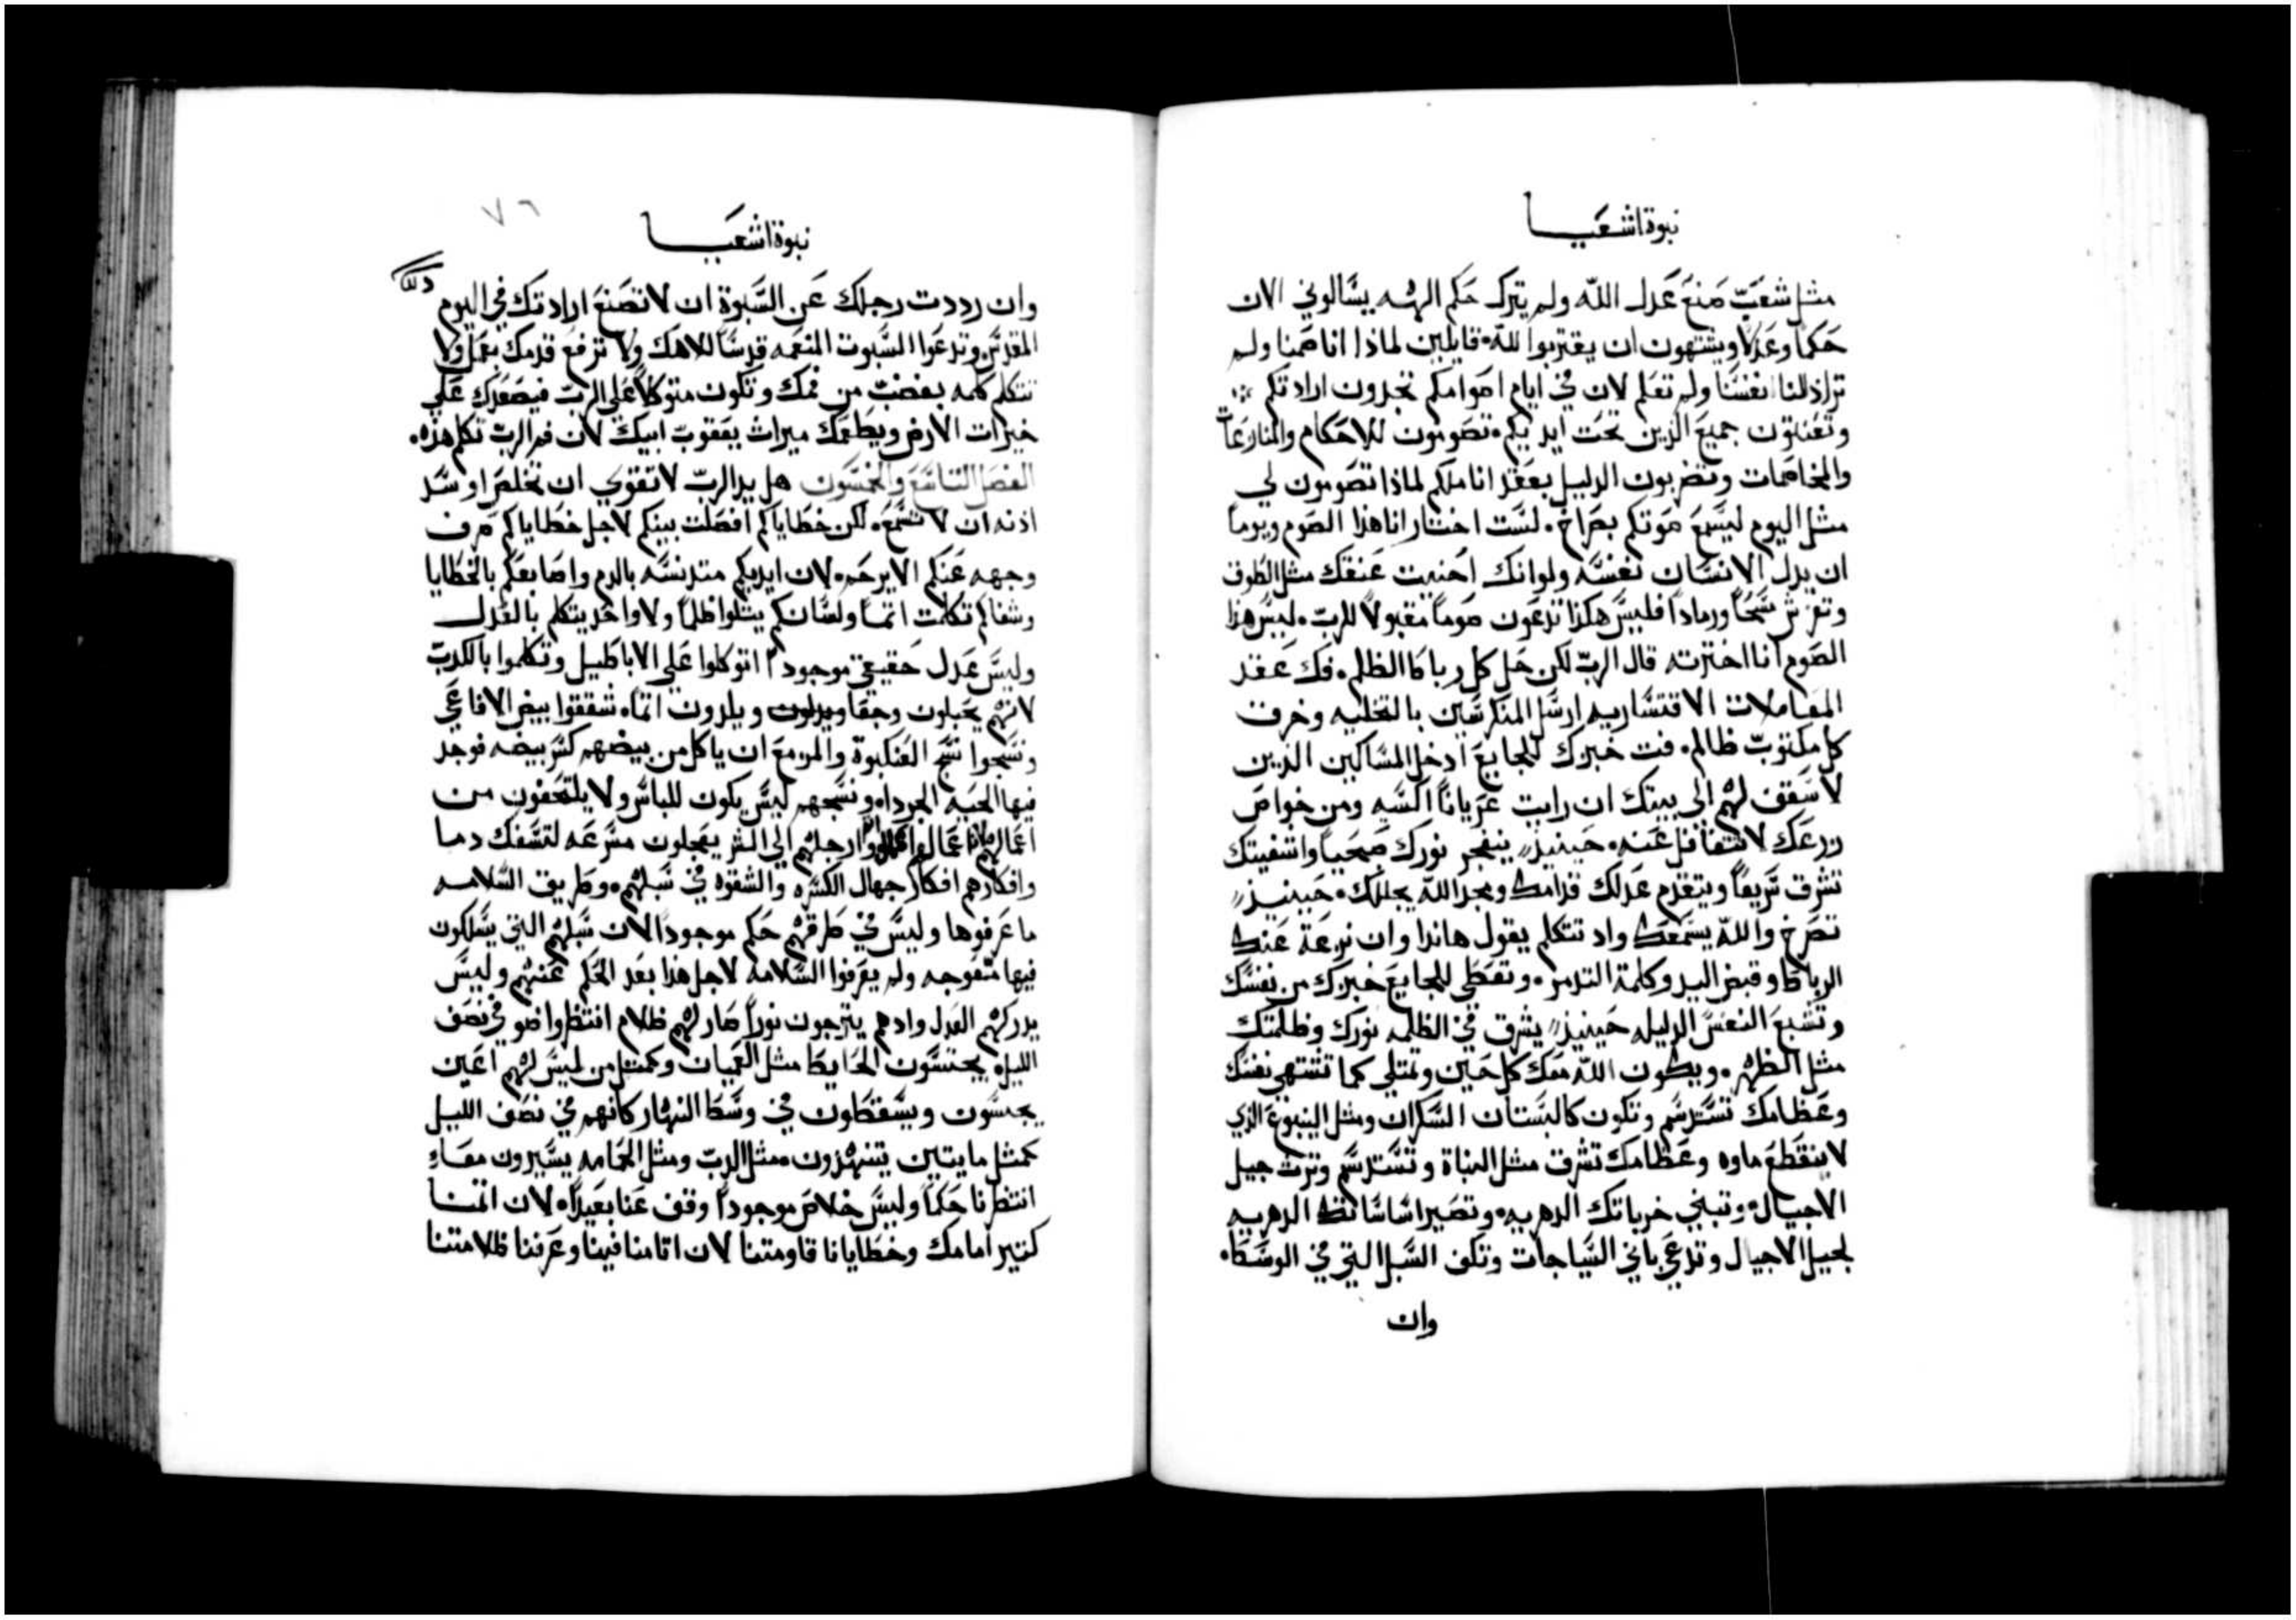 نبوة اشعيا
مثل شعب صنع عدل الله ولم يترك حكم الهه يسالوني الان
حكما وعدلا ويشتهون ان يقتربوا لله فايلين لماذا اننا صمنا ولم
ترا ذللنا انفسنا ولم تعلم لان في ايام اصوامكم تجدون ارادتكم
وتعنتون جميع الذين تحت ايديكم تصومون للاحكام والمنازعات
والمخاصمات وتضربون الدليل بعقد اناملكم لماذا تصومون لي
مثل اليوم ليسمع صوتكم بصراخ لست اختار انا هذا الصوم ويوما
ان يدل الانسان نفسه ولو انك احنيت عنقك مثل الطوق
وتفرش مسحا ورمادا فليس هكذا تدعون صوما مقبولا للرب ليس هذا
الصوم انا اخترته قال الرب لكن حل كل رباطا الظلم فك عقد
المعاملات الاقتسارية ارسل المنكرسين بالتخليه وخرق
كل مكتوب ظالم فت خبزك للجايع ادخل المساكين الذين
لا سقف لهم الى بيتك ان رايت عريانا اكسه ومن خواص
زرعك لا تتغافل عنه حينيذ ينفجر نورك صبحيا واشفيتك
تشرق سريعا ويتقدم عدلك قدامك ومجد الله يجللك حينيذ
تصرخ والله يسمعك واد تتكلم يقول هاندا وان نزعة عنك
الرباط وقبض اليد وكلمة التدمر وتعطي للجايع خبزك من نفسك
وتشبع النفس الدليله حينيذ يشرق في الظلمه نورك وظلمتك
مثل الظهر ويكون الله معك كل حين وتمتلي كما تشتهي نفسك
وعظامك تستدسم وتكون كالبستان السكران ومثل الينبوع الذي
لا ينقطع ماوه وعظامك تشرق مثل النباة وتستدسم وترث جيل
الاجيال وتبني خرباتك الدهريه وتصير اساساتك الدهريه
لجيل الاجيال وتدعى باني السياجات وتكف السبل التي في الوسط
وان
٧٦
نبوة اشعيا
وان رددت رجلك عن السبوة ان لا تصنع ارادتك في اليوم
المقدس وتدعوا السبوت المنعمه قدسا للاهك ولا ترفع قدمك بعمل ولا
تتكلم كلمه بغضب من فمك وتكون متوكلا على الرب فيصعدك على
خيرات الارض ويطعمك ميراث يعقوب ابيك لان فم الرب تكلم هذه
الفصل التاسع والخمسون هل يد الرب لا تقوي ان تخلص او سد
اذنه ان لا تسمع لكن خطاياكم افصلت بينكم لاجل خطاياكم صرف
وجهه عنكم الا يرحم لان ايديكم متدنسه بالدم واصابعكم بالخطايا
وشفاكم تكلمت اثما ولسانكم يتلوا ظلما ولا واحد يتكلم بالعدل
وليس عدل حقيقي موجودا اتوكلوا على الاباطيل وتكلموا بالكدب
لانهم يحبلون وجعا ويلدون اثما شققوا بيض الافاعي
ونسجوا نسج العنكبوة والمزمع ان ياكل من بيضهم كسر بيضه فوجد
فيها الحيه الجردا ونسجهم ليس يكون للباس ولا يلتحفون من
اعمالهم ارجلهم الى الشر يعجلون مسرعه لتسفك دما
وافكارهم افكار جهال الكسره والشقوه في سبلهم وطريق السلامه
ما عرفوها وليس في طرقهم حكم موجودا لان سبلهم التي يسلكون
فيها متعوجه ولم يعرفوا السلامه لاجل هذا بعد الحكم عنهم وليس
يدركهم العدل وادهم يترجون نورا صار لهم ظلام انتظروا ضو في نصف
الليل يجتسون الحايط مثل العميان وكمثل من ليس لهم اعين
يجسون ويسقطون في وسط النهار كانهم في نصف الليل
كمثل مايتين يتنهدون مثل الدب ومثل الحمامه يسيرون معا
انتظرنا حكما وليس خلاص موجودا وقف عنا بعيدا لان اثمنا
كتير امامك وخطايانا قاومتنا لان اتامنا فينا وعرفنا ظلامتنا